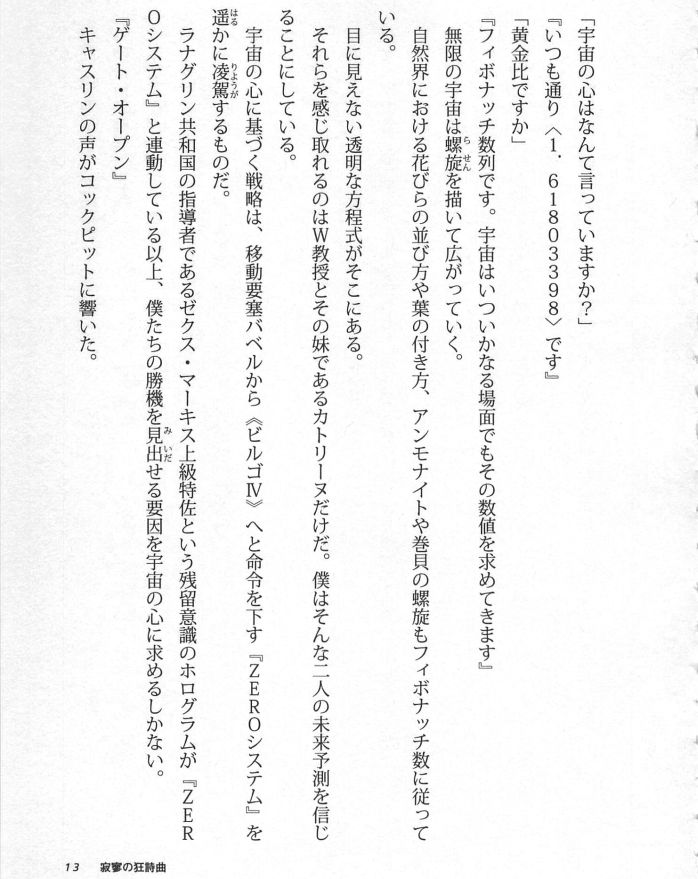 「宇宙の心はなんて言っていますか？」
『いつも通り〈１．６１８０３３９８〉です』
「黄金比ですか」
『フィボナッチ数列です。宇宙はいついかなる場面でもその数値を求めてきます』
無限の宇宙は螺旋を描いて広がっていく。
自然界における花びらの並び方や葉の付き方、アンモナイトや巻貝の螺旋もフィボナッチ数に従って
いる。
目に見えない透明な方程式がそこにある。
それらを感じ取れるのはＷ教授とその妹であるカトリーヌだけだ。僕はそんな二人の未来予測を信じ
ることにしている。
宇宙の心に基づく戦略は、移動要塞バベルから《ビルゴⅣ》へと命令を下す『ＺＥＲＯシステム』を
遥かに凌駕するものだ。
ラナグリン共和国の指導者であるゼクス・マーキス上級特佐という残留意識のホログラムが『ＺＥＲ
Ｏシステム』と連動している以上、僕たちの勝機を見出せる要因を宇宙の心に求めるしかない。
『ゲート・オープン』
キャスリンの声がコックピットに響いた。
13 寂寥の狂詩曲